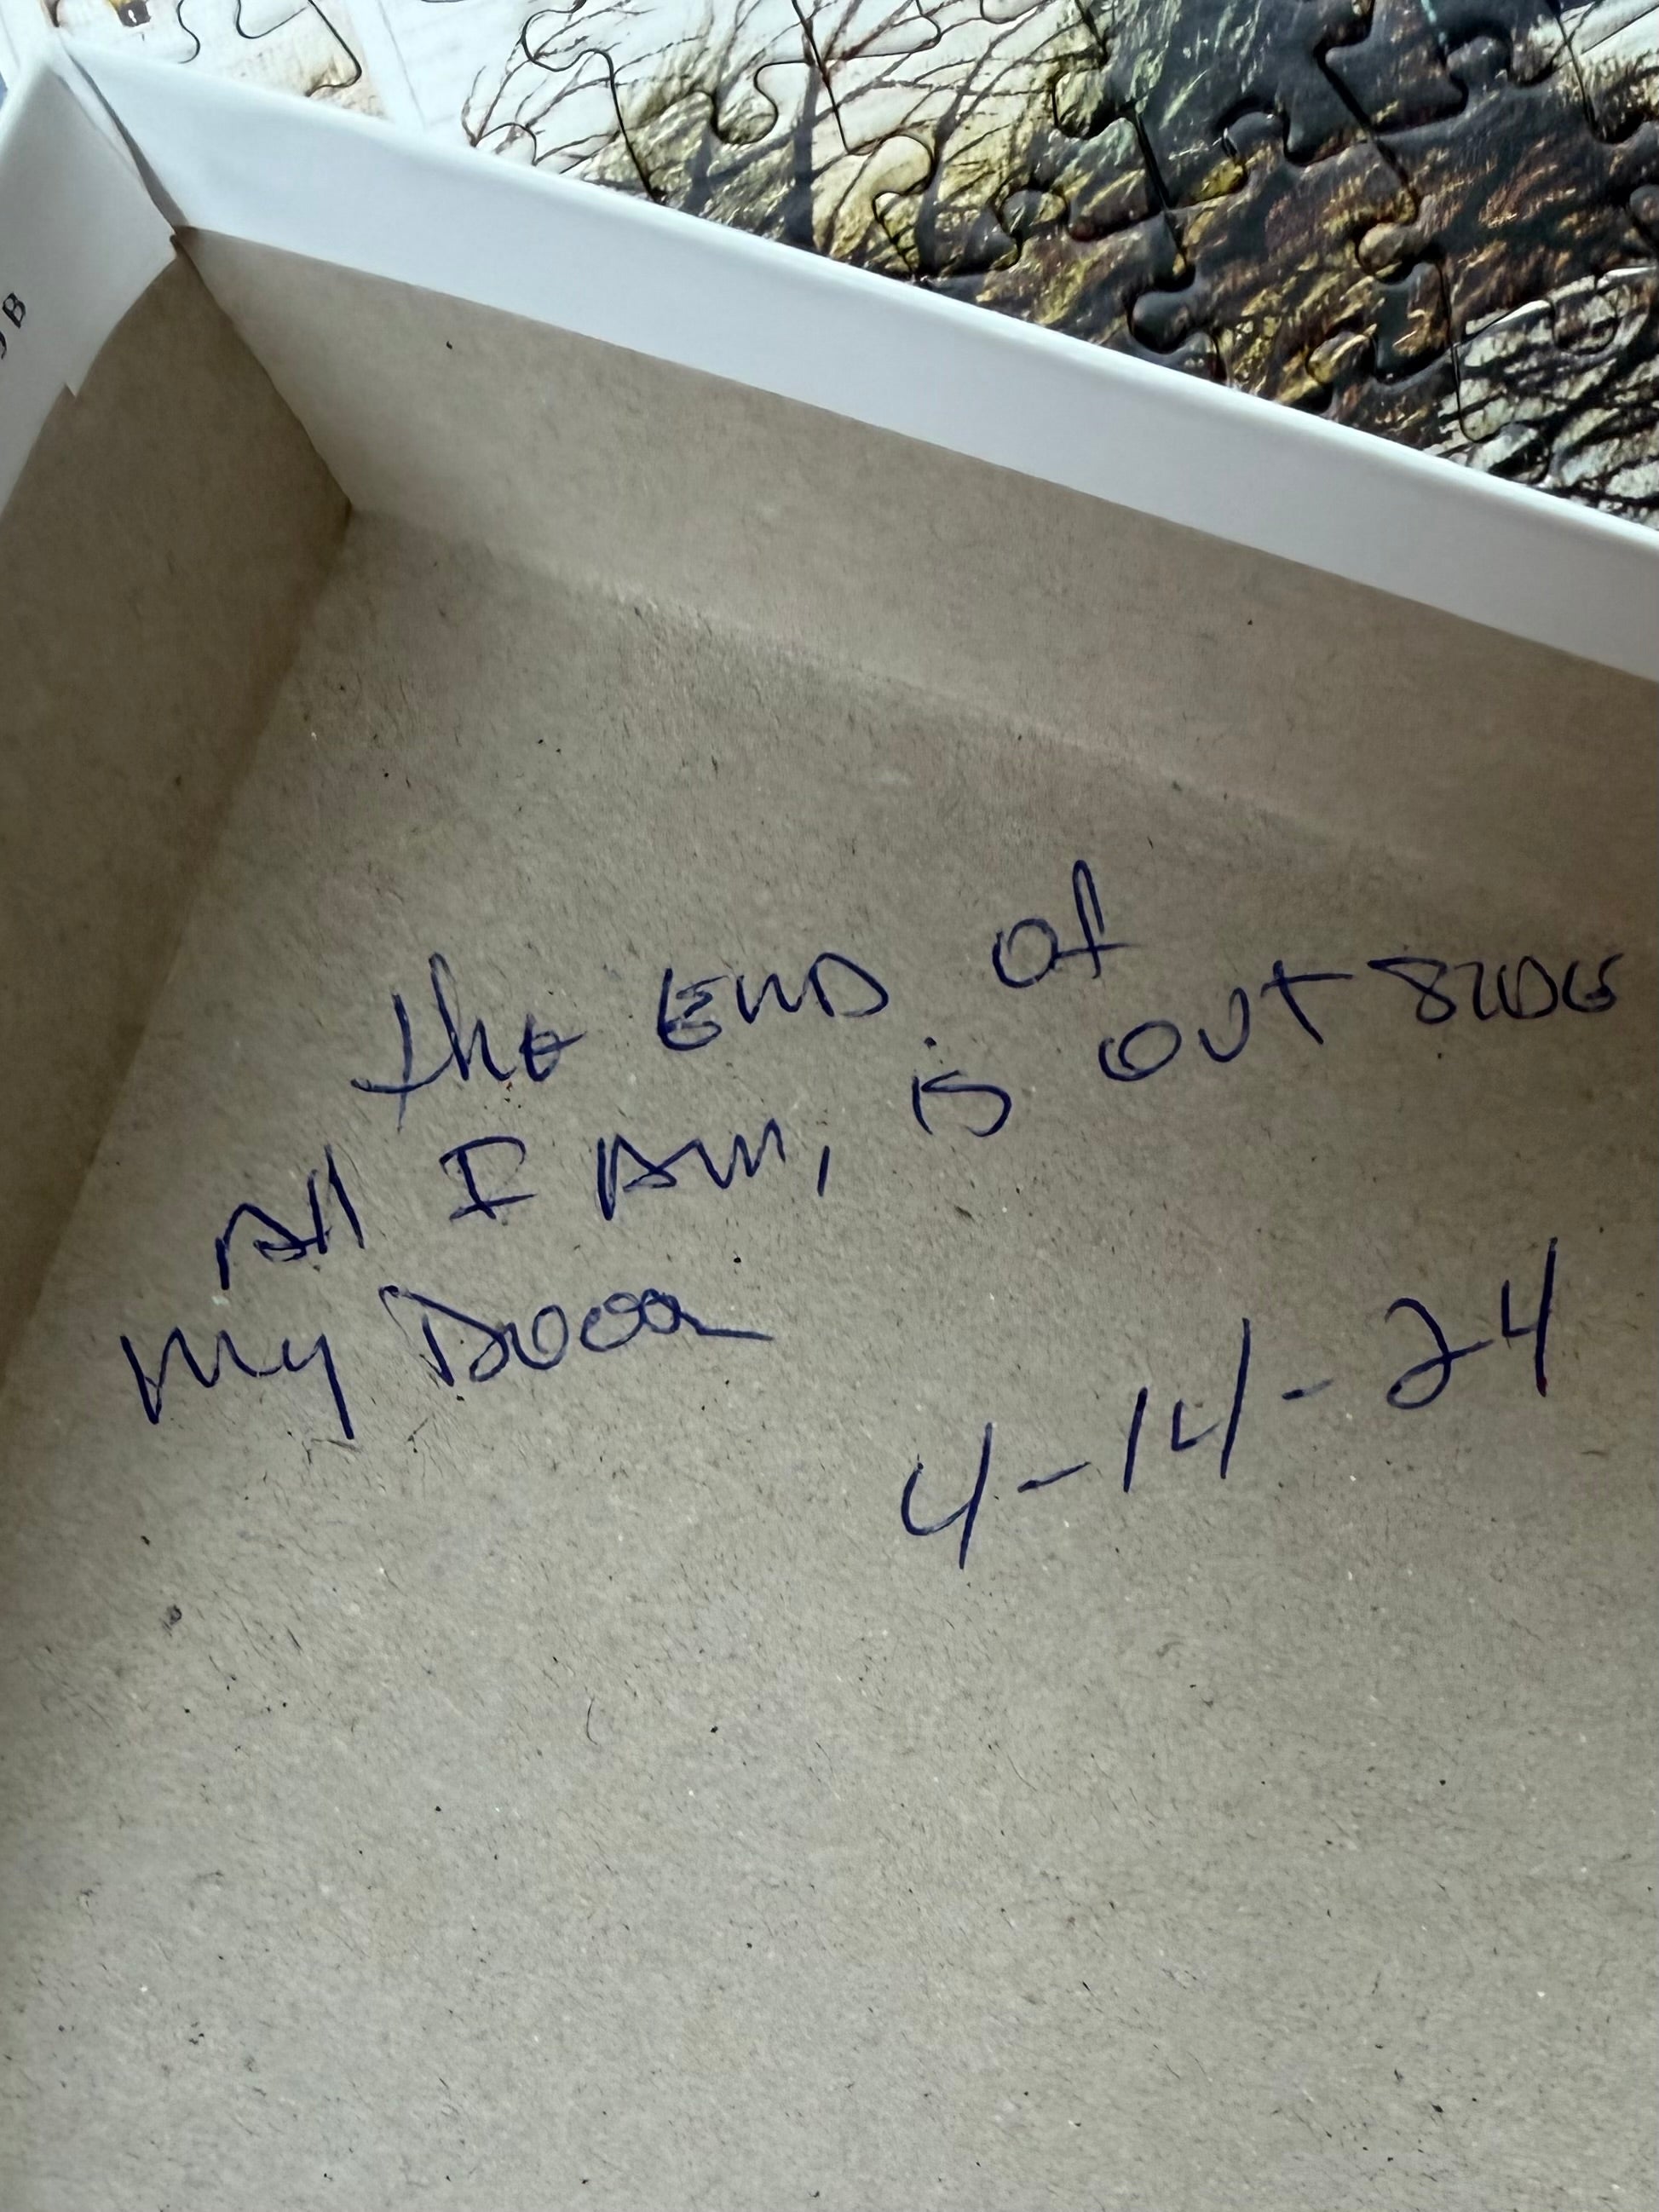 the END of
All I AM, is outSIDE
My DooR
4-14-24
B